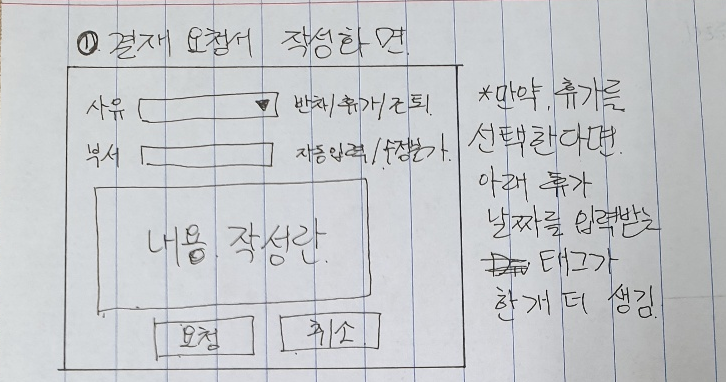 ① 결재 요청서 작성화면
사유 반차/휴가/조퇴
부서 자동입력/수정불가
내용 작성란
요청 취소
*만약, 휴가를
선택한다면
아래 휴가
날짜를 입력받는
태그가
한개 더 생김